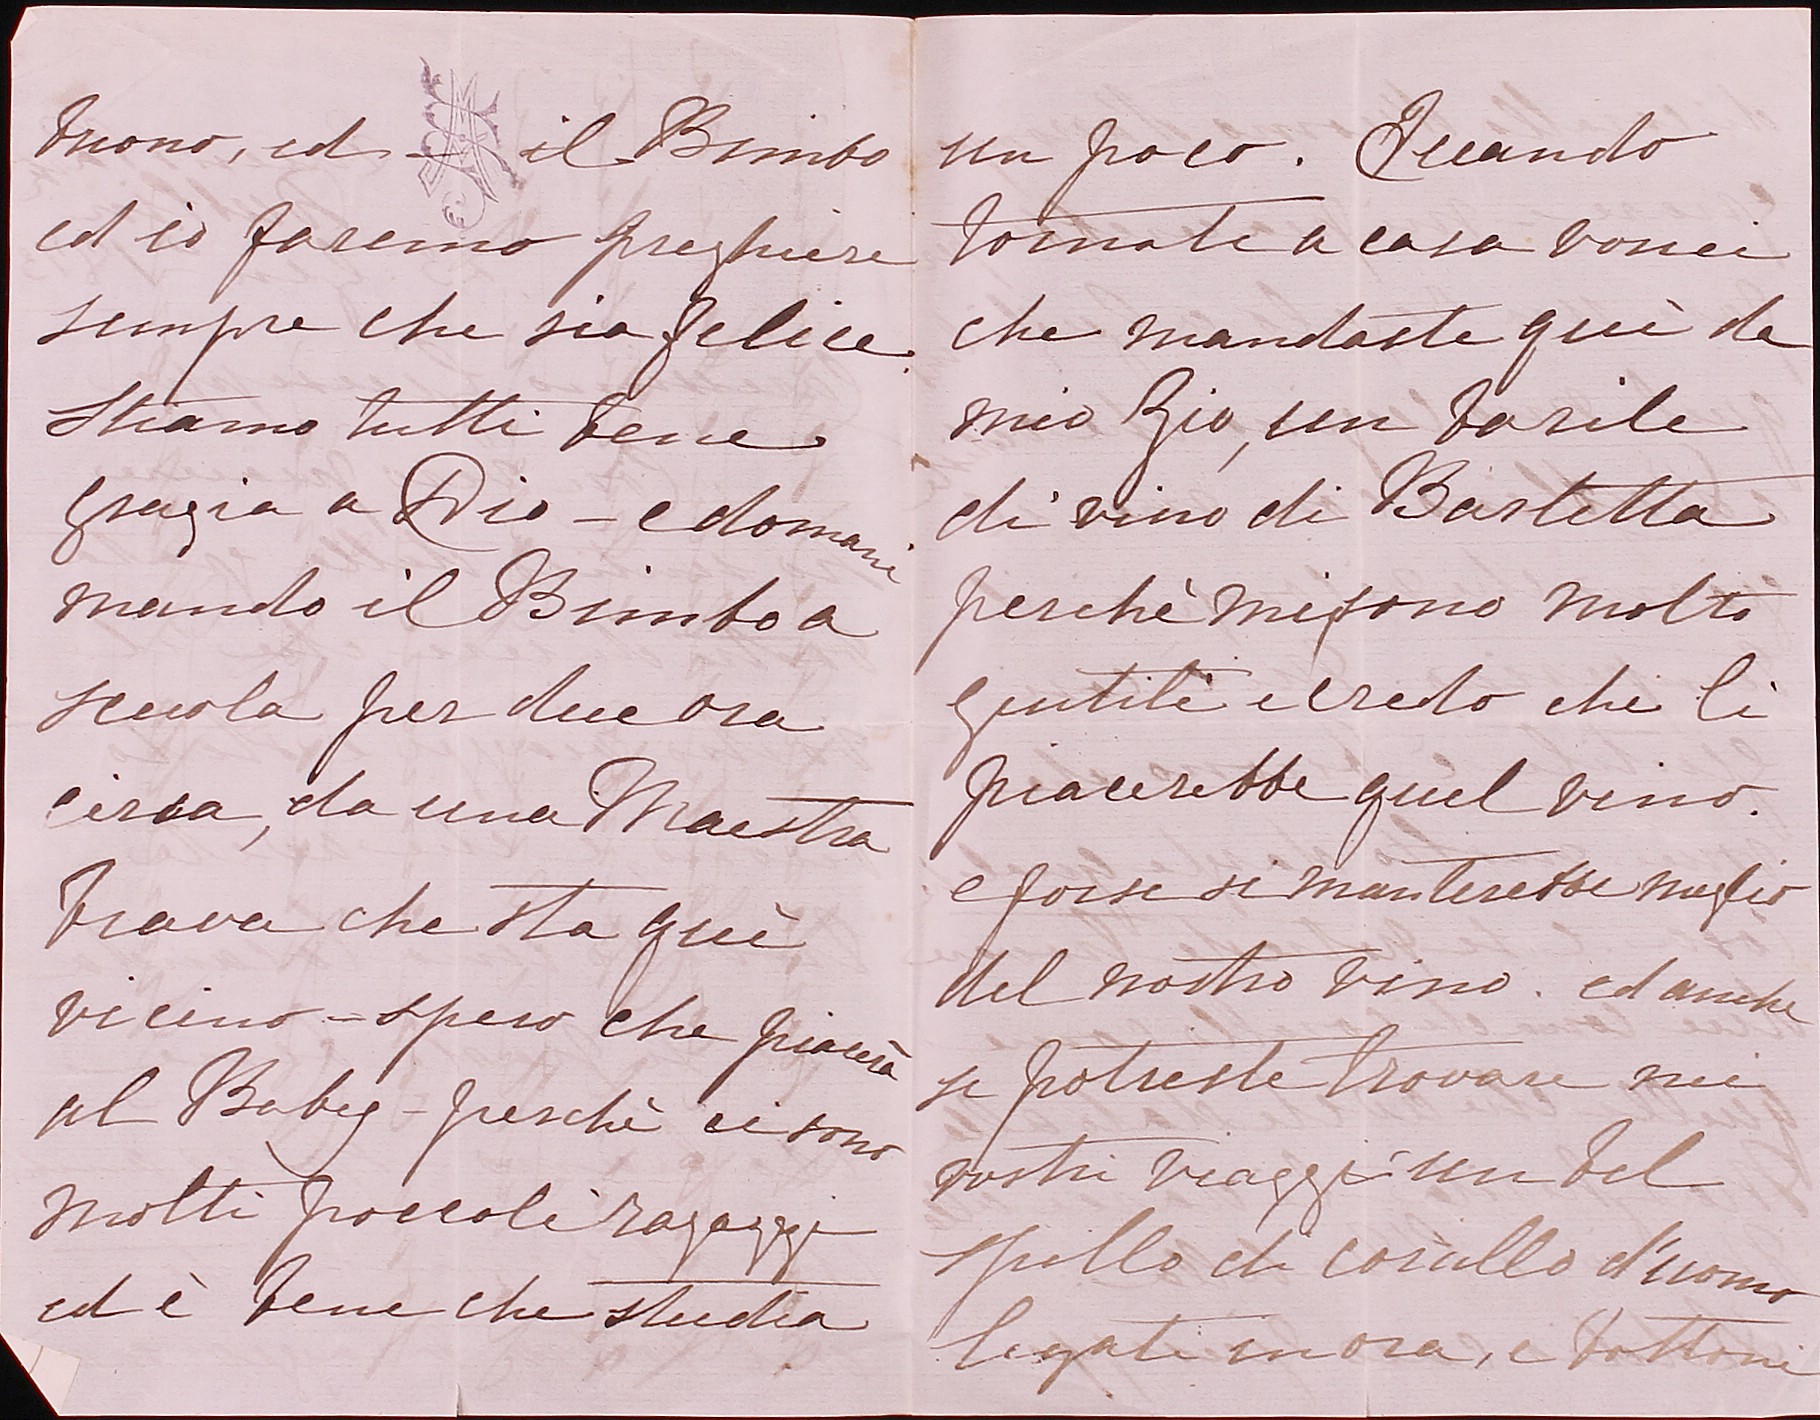 buono, ed il Bimbo
ed io faremo preghiere
sempre che sia felice.
Stiamo tutti bene
grazia a Dio - e domani
mando il Bimbo a
scuola per due ora
circa, da una Maestra
brava che sta quì
vicino - spero che piacerà
al Baby - perchè ci sono
molti poccoli ragazzi
ed è bene che studia
un poco. Quando
tornate a casa vorrei
che mandaste quì da
mio Zio, un barile
di vino di Barletta
perchè mi sono molto
gentili e credo che li
piacerebbe quel vino.
e forse si manterebbe meglio
del nostro vino. ed anche
se potreste trovare nei
vostri viaggi un bel
spillo di corallo d'uomo
legati in ora, e bottoni